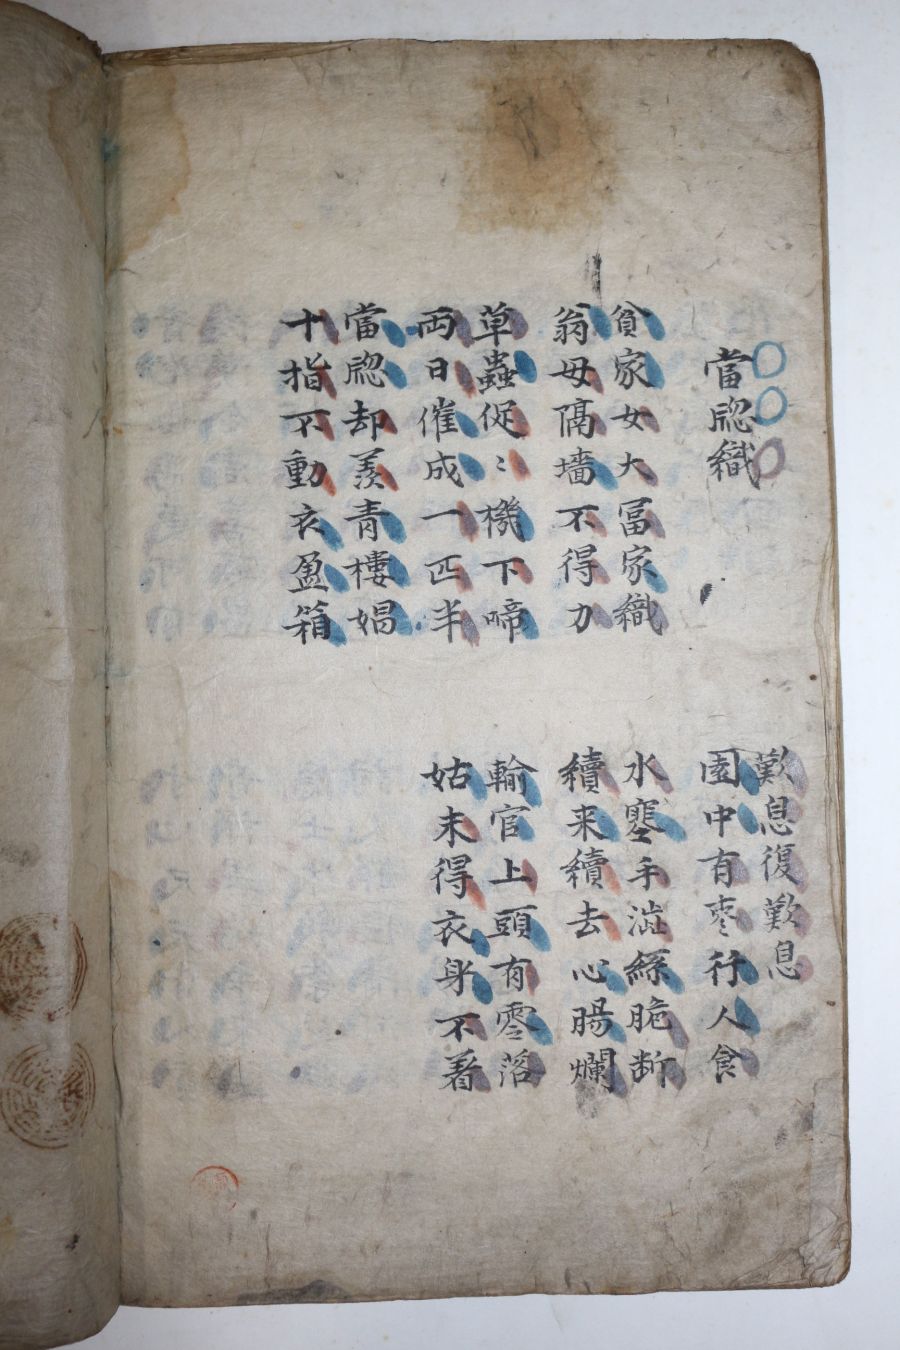 當牕織
歎息復歎息
園中有枣行人食
貧家女大冨家織
翁母隔墻不得力
水寒手澁絲脆断
續来續去心腸爛
草蟲促〻機下啼
両日催成一匹半
輸官上頭有零落
姑未得衣身不着
當牕却羨青樓娼
十指不動衣盈箱